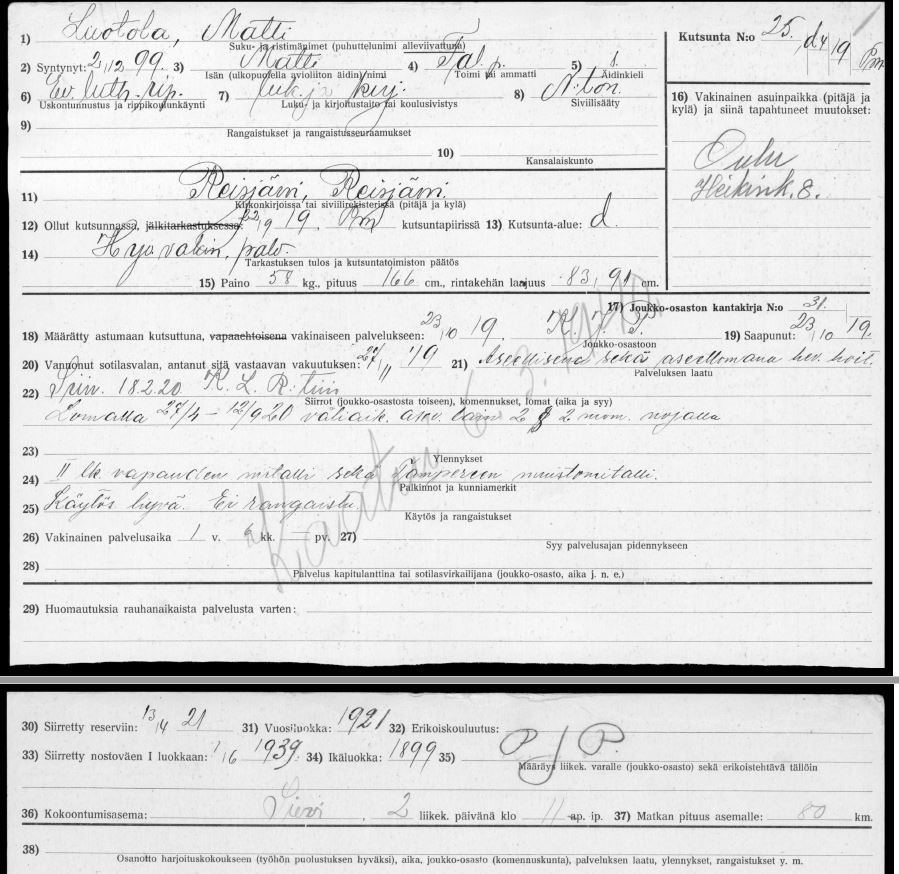 1) Luotola, Matti
Suku- ja ristimänimet (puhuttelunimi alleviivattuna)
Kutsunta N:o 25. d4 19 Pm
2) Syntynyt: 2/12 99. 3) Matti 4) Tal. p. 5) s.
Isän (ulkopuolella avioliiton äidin) nimi Toimi tai ammatti Äidinkieli
6) Ev. luth. rip. 7) luk. ja kirj. 8) N:ton.
Uskontunnustus ja rippikoulunkäynti Luku- ja kirjoitustaito tai koulusivistys Siviilisääty
9)
Rangaistukset ja rangaistusseuraamukset
10)
Kansalaiskunto
16) Vakinainen asuinpaikka (pitäjä ja
kylä) ja siinä tapahtuneet muutokset:
Oulu
Heikink. 8.
11) Reisjärvi, Reisjärvi.
Kirkonkirjoissa tai siviilirekisterissä (pitäjä ja kylä)
12) Ollut kutsunnassa, jälkitarkastuksessa: 22/9 19. Pm kutsuntapiirissä 13) Kutsunta-alue: d.
14) Hyv. vakin. palv.
Tarkastuksen tulos ja kutsuntatoimiston päätös
15) Paino 58 kg., pituus 166 cm., rintakehän laajuus 83, 91 cm.
17) Joukko-osaston kantakirja N:o 31.
18) Määrätty astumaan kutsuttuna, vapaaehtoisena vakinaiseen palvelukseen: 23/10 19. K. J. P. 19) Saapunut: 23/10 19.
Joukko-osastoon
20) Vannonut sotilasvalan, antanut sitä vastaavan vakuutuksen: 27/11 19 21) Aseellisena sekä aseettomana hev. hoit.
Palveluksen laatu
22) Siirr. 18.2.20 K. L. R:tiin
Siirrot (joukko-osastosta toiseen), komennukset, lomat (aika ja syy)
Lomalla 27/4 – 12/9 20 väliaik. asev. lain 2 § 2 mom. nojalla
23)
Ylennykset
24) II lk. vapauden mitalli sekä Tampereen muistomitalli.
Palkinnot ja kunniamerkit
25) Käytös hyvä. Ei rangaistu.
Käytös ja rangaistukset
26) Vakinainen palvelusaika 1 v. 6 kk. — pv. 27)
Syy palvelusajan pidennykseen
28)
Palvelus kapitulanttina tai sotilasvirkailijana (joukko-osasto, aika j. n. e.)
Kaatunut 6. 3.
29) Huomautuksia rauhanaikaista palvelusta varten:
30) Siirretty reserviin: 13/4 21 31) Vuosiluokka: 1921 32) Erikoiskoulutus:
33) Siirretty nostoväen I luokkaan: 1/6 1939. 34) Ikäluokka: 1899 35) P J P.
Määräys liikek. varalle (joukko-osasto) sekä erikoistehtävä tällöin
36) Kokoontumisasema: Sievi, 2 liikek. päivänä klo 11 ap. ip. 37) Matkan pituus asemalle: 80 km.
38)
Osanotto harjoituskokoukseen (työhön puolustuksen hyväksi), aika, joukko-osasto (komennuskunta), palveluksen laatu, ylennykset, rangaistukset y. m.